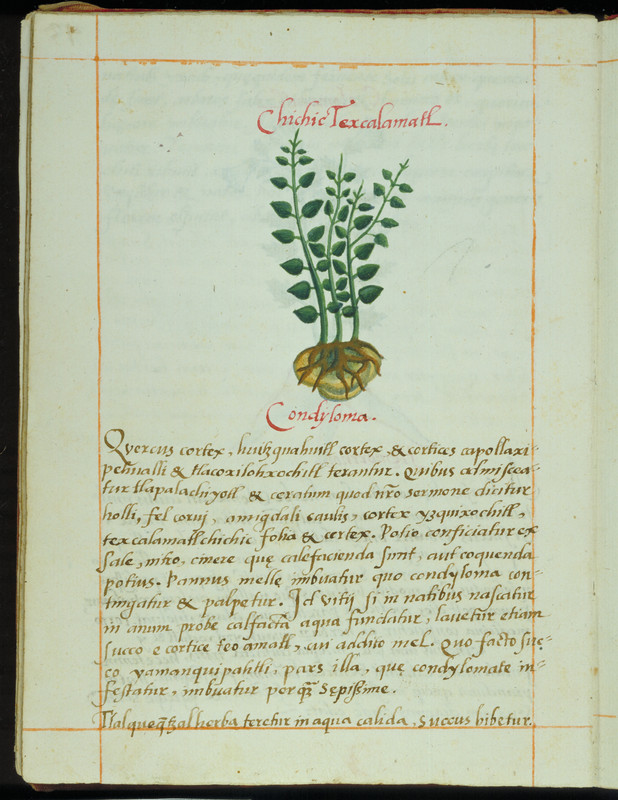 Chichic Texcalamatl.
Condyloma.
Quercus cortex, huitzquahuitl cortex, & cortices capollaxi=
pehualli & tlacoxilohxochitl terantur. quibus admiscea=
tur tlapalachiyotl & ceratum quod nr̃o sermone dicitur
holli, fel corui, amigdali caulis, cortex yzquixochitl,
texcalamatl chichic folia & cortex. Potio conficiatur ex
sale, nitro, cinere quę calefacienda sunt, aut coquenda
potius. Pannus melle imbuatur quo condyloma con=
tingatur & palpetur. Id vitij si in natibus nascatur
in anum probe calfacta aqua fundatur, lauetur etiam
succo e cortice teo amatl, cui addito mel. Quo facto suc=
co yamanqui patitli, pars illa, quę condylomate in=
festatur, imbuatur porq̃z sepissime.
Tlalqueq̃tzal herba teretur in aqua calida, succus bibetur.